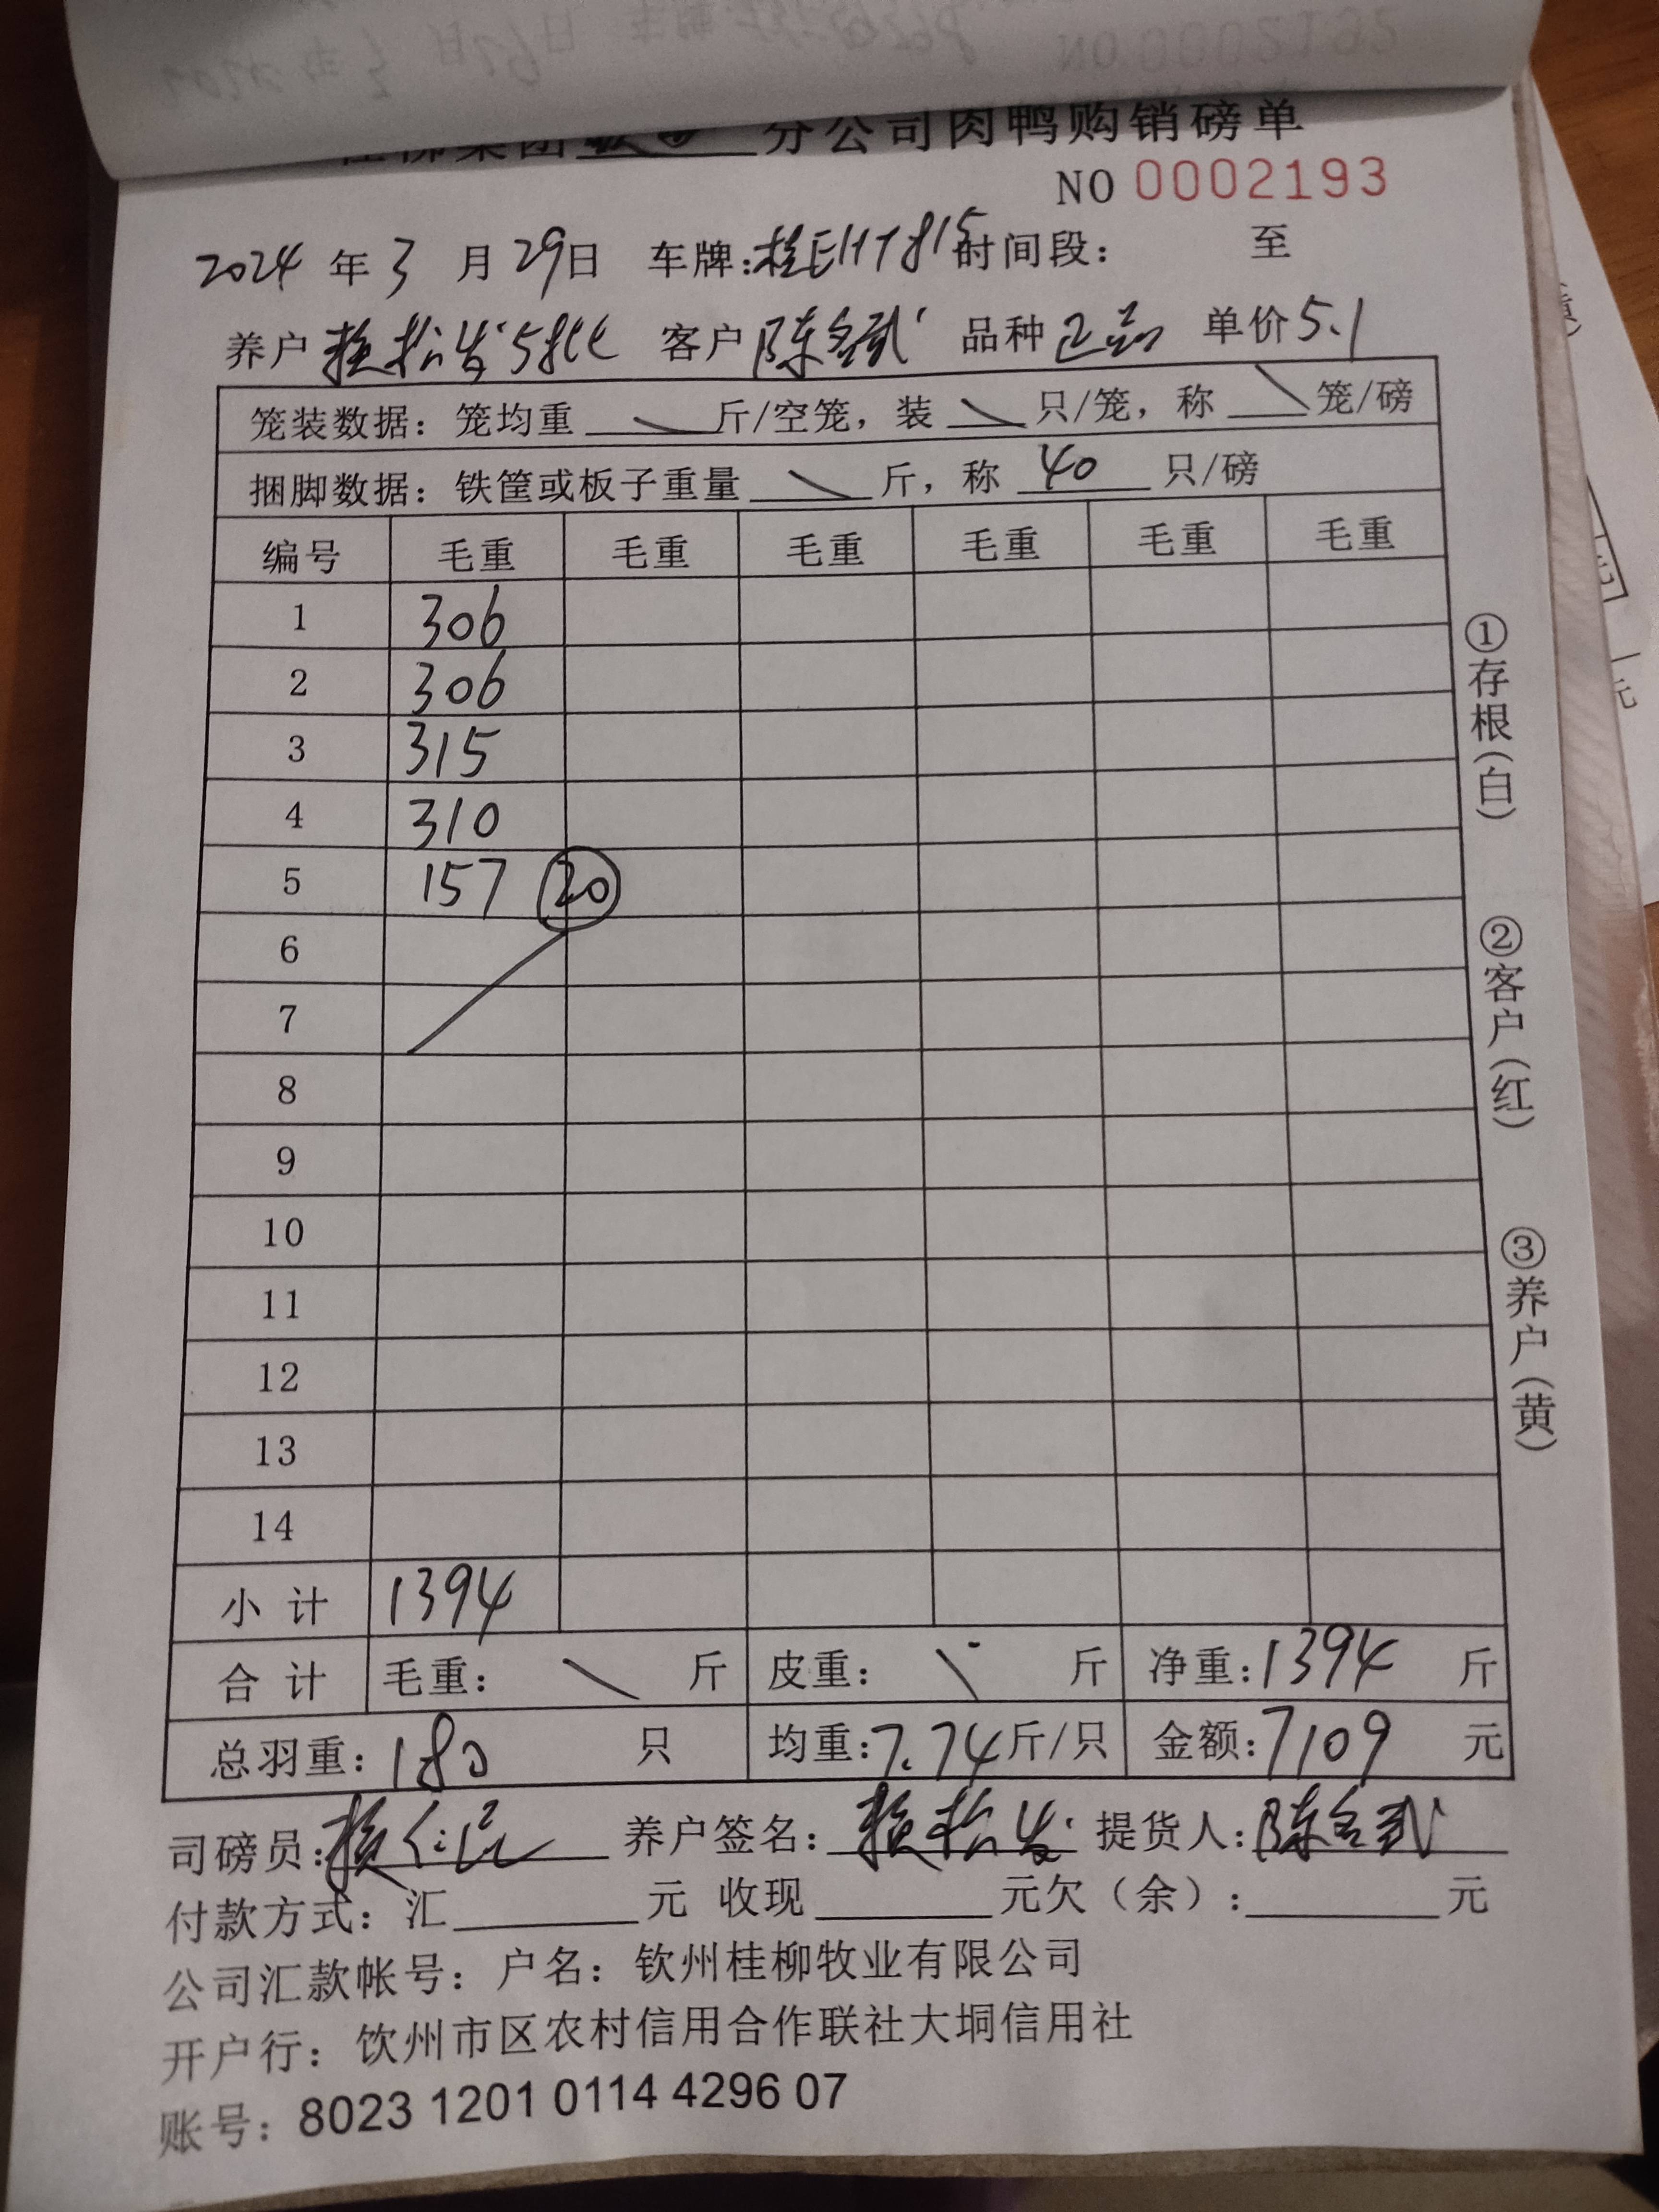 分公司肉鸭购销磅单
NO 0002193
2024 年 3 月 29日 车牌:桂EHT815 时间段: 至
养户 松发 5批 客户 陈武 品种 正品 单价 5.1
笼装数据: 笼均重 \ 斤/空笼, 装 \ 只/笼, 称 \ 笼/磅
捆脚数据: 铁筐或板子重量 \ 斤, 称 40 只/磅
编号 毛重 毛重 毛重 毛重 毛重 毛重
1 306
2 306
3 315
4 310
5 157 20
6
7
8
9
10
11
12
13
14
小 计 1394
合 计 毛重: \ 斤 皮重: \ 斤 净重:1394 斤
总羽重: 180 只 均重:7.74斤/只 金额:7109 元
司磅员: 养户签名: 松发 提货人:陈武
付款方式: 汇 元 收现 元欠(余): 元
公司汇款帐号: 户名: 钦州桂柳牧业有限公司
开户行: 钦州市区农村信用合作联社大垌信用社
账号: 8023 1201 0114 4296 07
①存根(白)
②客户(红)
③养户(黄)